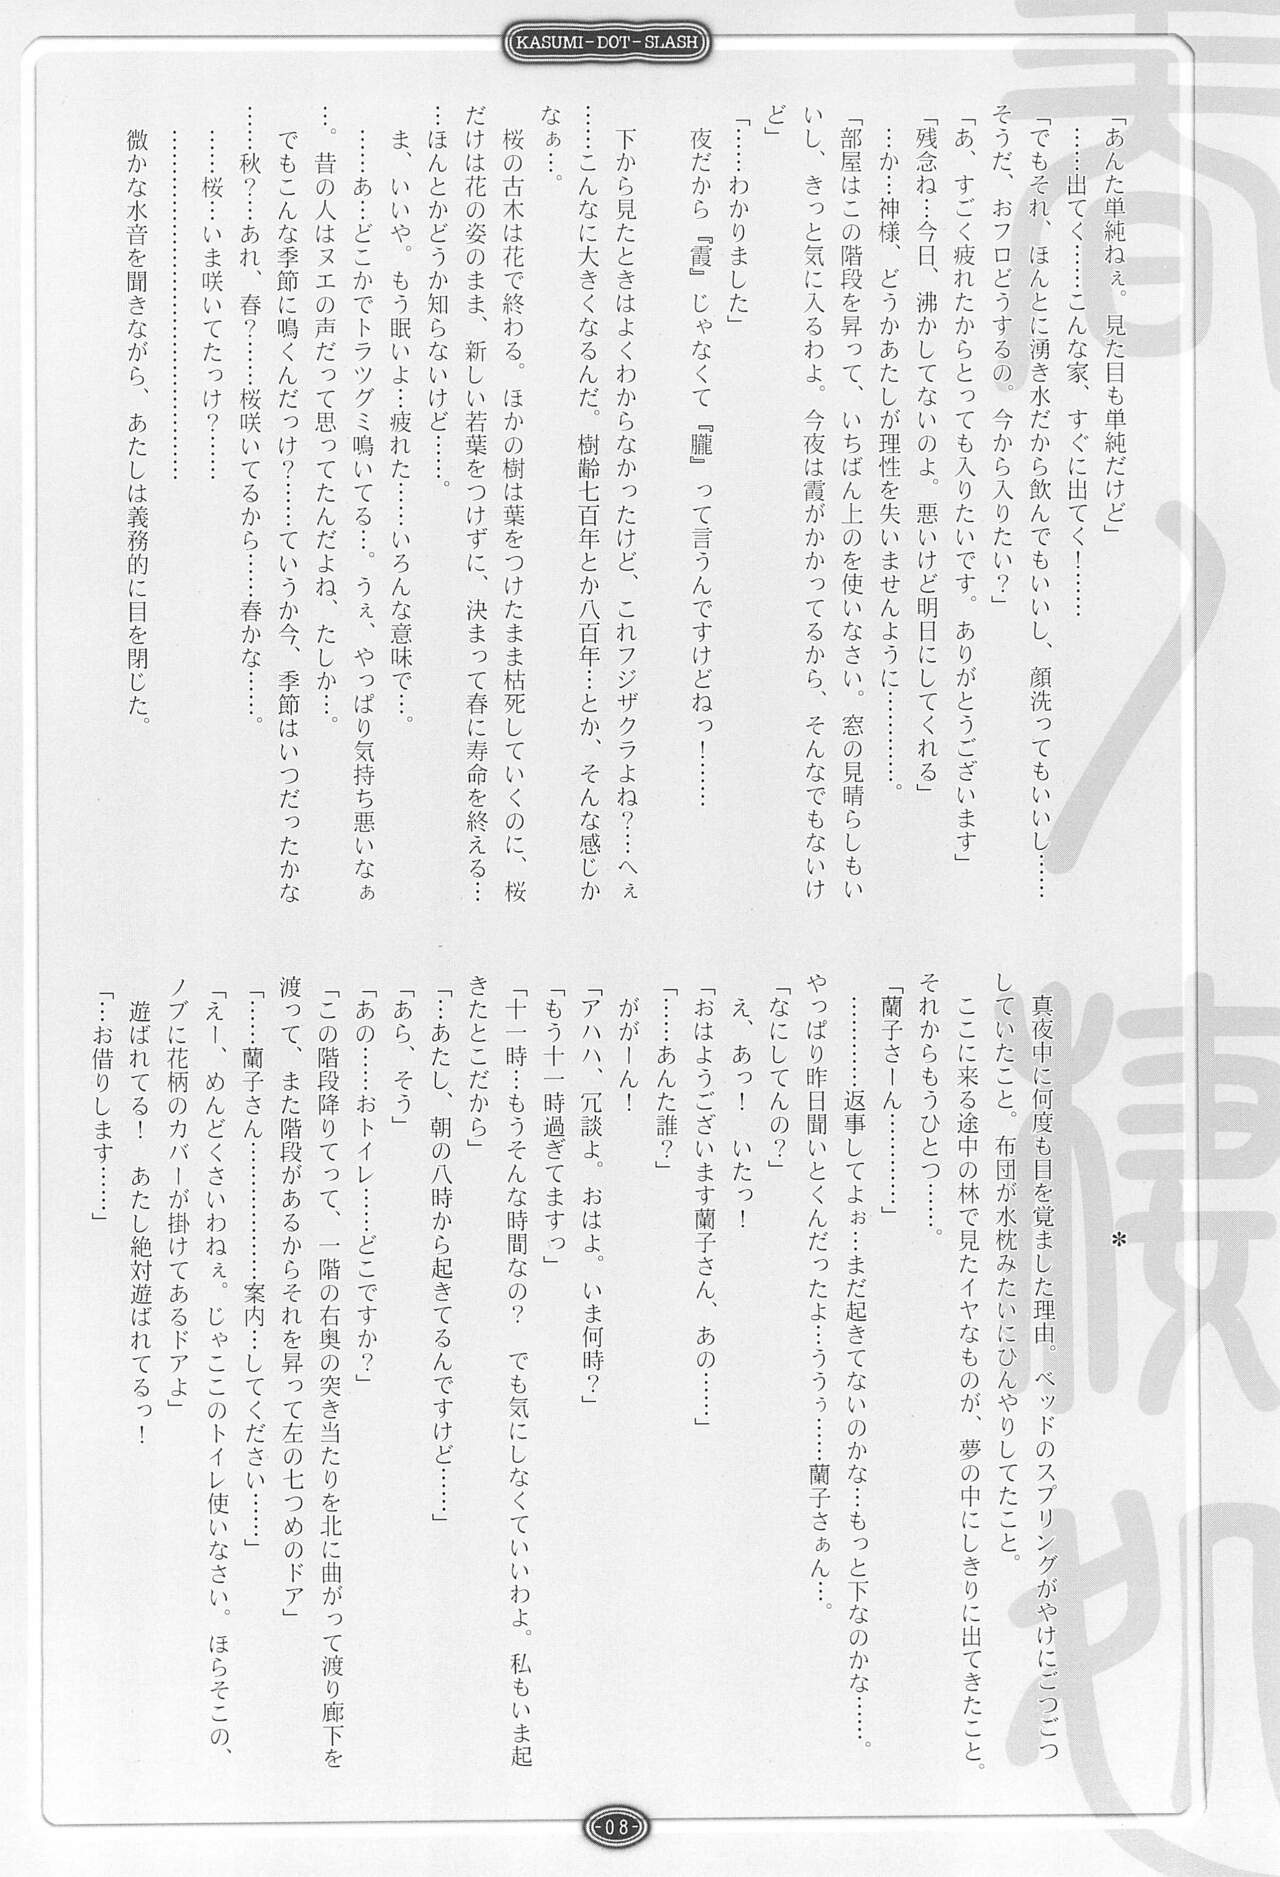 KASUMI-DOT-SLASH
「あんた単純ねぇ。見た目も単純だけど」
……出てく……こんな家、すぐに出てく！……
「でもそれ、ほんとに湧き水だから飲んでもいいし、顔洗ってもいいし……
そうだ、おフロどうするの。今から入りたい？」
「あ、すごく疲れたからとっても入りたいです。ありがとうございます」
「残念ね…今日、沸かしてないのよ。悪いけど明日にしてくれる」
…か…神様、どうかあたしが理性を失いませんように…………。
「部屋はこの階段を昇って、いちばん上のを使いなさい。窓の見晴らしもい
いし、きっと気に入るわよ。今夜は霞がかかってるから、そんなでもないけ
ど」
「……わかりました」
夜だから『霞』じゃなくて『朧』って言うんですけどねっ！……
下から見たときはよくわからなかったけど、これフジザクラよね？…へぇ
……こんなに大きくなるんだ。樹齢七百年とか八百年…とか、そんな感じか
なぁ…。
桜の古木は花で終わる。ほかの樹は葉をつけたまま枯死していくのに、桜
だけは花の姿のまま、新しい若葉をつけずに、決まって春に寿命を終える…
…ほんとかどうか知らないけど…。
ま、いいや。もう眠いよ…疲れた……いろんな意味で…。
……あ…どこかでトラツグミ鳴いてる…。うぇ、やっぱり気持ち悪いなぁ
…。昔の人はヌエの声だって思ってたんだよね、たしか…。
でもこんな季節に鳴くんだっけ？……ていうか今、季節はいつだったかな
…秋？…あれ、春？……桜咲いてるから……春かな……。
……桜…いま咲いてたっけ？……
………………………………………
微かな水音を聞きながら、あたしは義務的に目を閉じた。
＊
真夜中に何度も目を覚ました理由。ベッドのスプリングがやけにごつごつ
していたこと。布団が水枕みたいにひんやりしてたこと。
ここに来る途中の林で見たイヤなものが、夢の中にしきりに出てきたこと。
それからもうひとつ……。
「蘭子さーん…………」
…………返事してよぉ…まだ起きてないのかな…もっと下なのかな……。
やっぱり昨日聞いとくんだったよ…ううぅ……蘭子さぁん…。
「なにしてんの？」
え、あっ！　いたっ！
「おはようございます蘭子さん、あの……」
「……あんた誰？」
ががーん！
「アハハ、冗談よ。おはよ。いま何時？」
「もう十一時過ぎてますっ」
「十一時…もうそんな時間なの？　でも気にしなくていいわよ。私もいま起
きたとこだから」
「…あたし、朝の八時から起きてるんですけど……」
「あら、そう」
「あの……おトイレ……どこですか？」
「この階段降りてって、一階の右奥の突き当たりを北に曲がって渡り廊下を
渡って、また階段があるからそれを昇って左の七つめのドア」
「……蘭子さん………………案内…してください……」
「えー、めんどくさいわねぇ。じゃここのトイレ使いなさい。ほらそこの、
ノブに花柄のカバーが掛けてあるドアよ」
遊ばれてる！　あたし絶対遊ばれてるっ！
「…お借りします……」
-08-